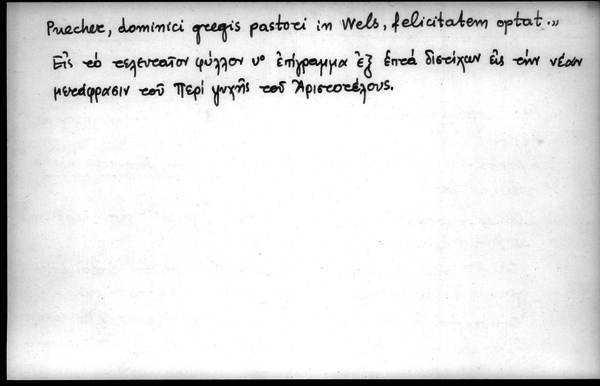 Puecher, dominici gregis pastori in Wels, felicitatem optat.»
Εἰς τὸ τελευταῖον φύλλον vº ἐπίγραμμα ἐξ ἑπτά διστίχων εἰς τὴν νέαν
μετάφρασιν τοῦ Περὶ ψυχῆς τοῦ Ἀριστοτέλους.